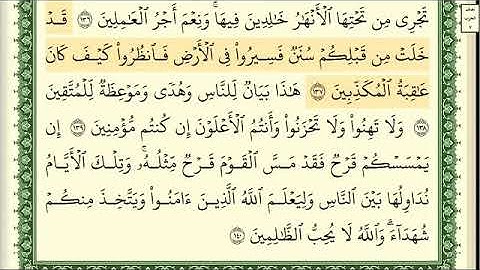 تَجْرِى مِن تَحْتِهَا ٱلْأَنْهَٰرُ خَٰلِدِينَ فِيهَا ۚ وَنِعْمَ أَجْرُ ٱلْعَٰمِلِينَ ١٣٦ قَدْ
خَلَتْ مِن قَبْلِكُمْ سُنَنٌ فَسِيرُوا۟ فِى ٱلْأَرْضِ فَٱنظُرُوا۟ كَيْفَ كَانَ
عَٰقِبَةُ ٱلْمُكَذِّبِينَ ١٣٧ هَٰذَا بَيَانٌ لِّلنَّاسِ وَهُدًى وَمَوْعِظَةٌ لِّلْمُتَّقِينَ
١٣٨ وَلَا تَهِنُوا۟ وَلَا تَحْزَنُوا۟ وَأَنتُمُ ٱلْأَعْلَوْنَ إِن كُنتُم مُّؤْمِنِينَ ١٣٩ إِن
يَمْسَسْكُمْ قَرْحٌ فَقَدْ مَسَّ ٱلْقَوْمَ قَرْحٌ مِّثْلُهُۥ ۚ وَتِلْكَ ٱلْأَيَّامُ
نُدَاوِلُهَا بَيْنَ ٱلنَّاسِ وَلِيَعْلَمَ ٱللَّهُ ٱلَّذِينَ ءَامَنُوا۟ وَيَتَّخِذَ مِنكُمْ
شُهَدَآءَ ۗ وَٱللَّهُ لَا يُحِبُّ ٱلظَّٰلِمِينَ ١٤٠